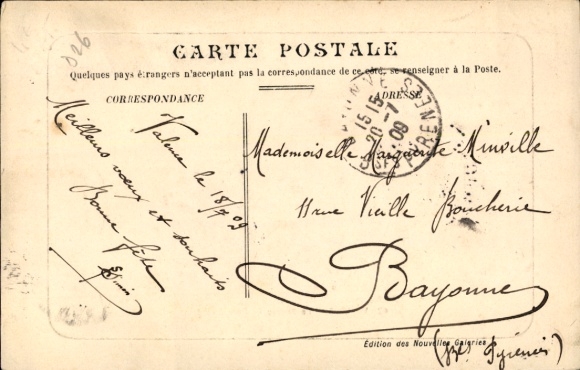 826
CARTE POSTALE
Quelques pays étrangers n'acceptant pas la correspondance de ce côté, se renseigner à la Poste.
CORRESPONDANCE
ADRESSE
Valence le 18/7 09
Meilleurs vœux et souhaits
Bonne fête
BAYONNE
15 15
20 -7
09
PYRENEES
Mademoiselle Marguerite Minville
11 rue Vieille Boucherie
Bayonne
(Bses Pyrénées)
Édition des Nouvelles Galeries